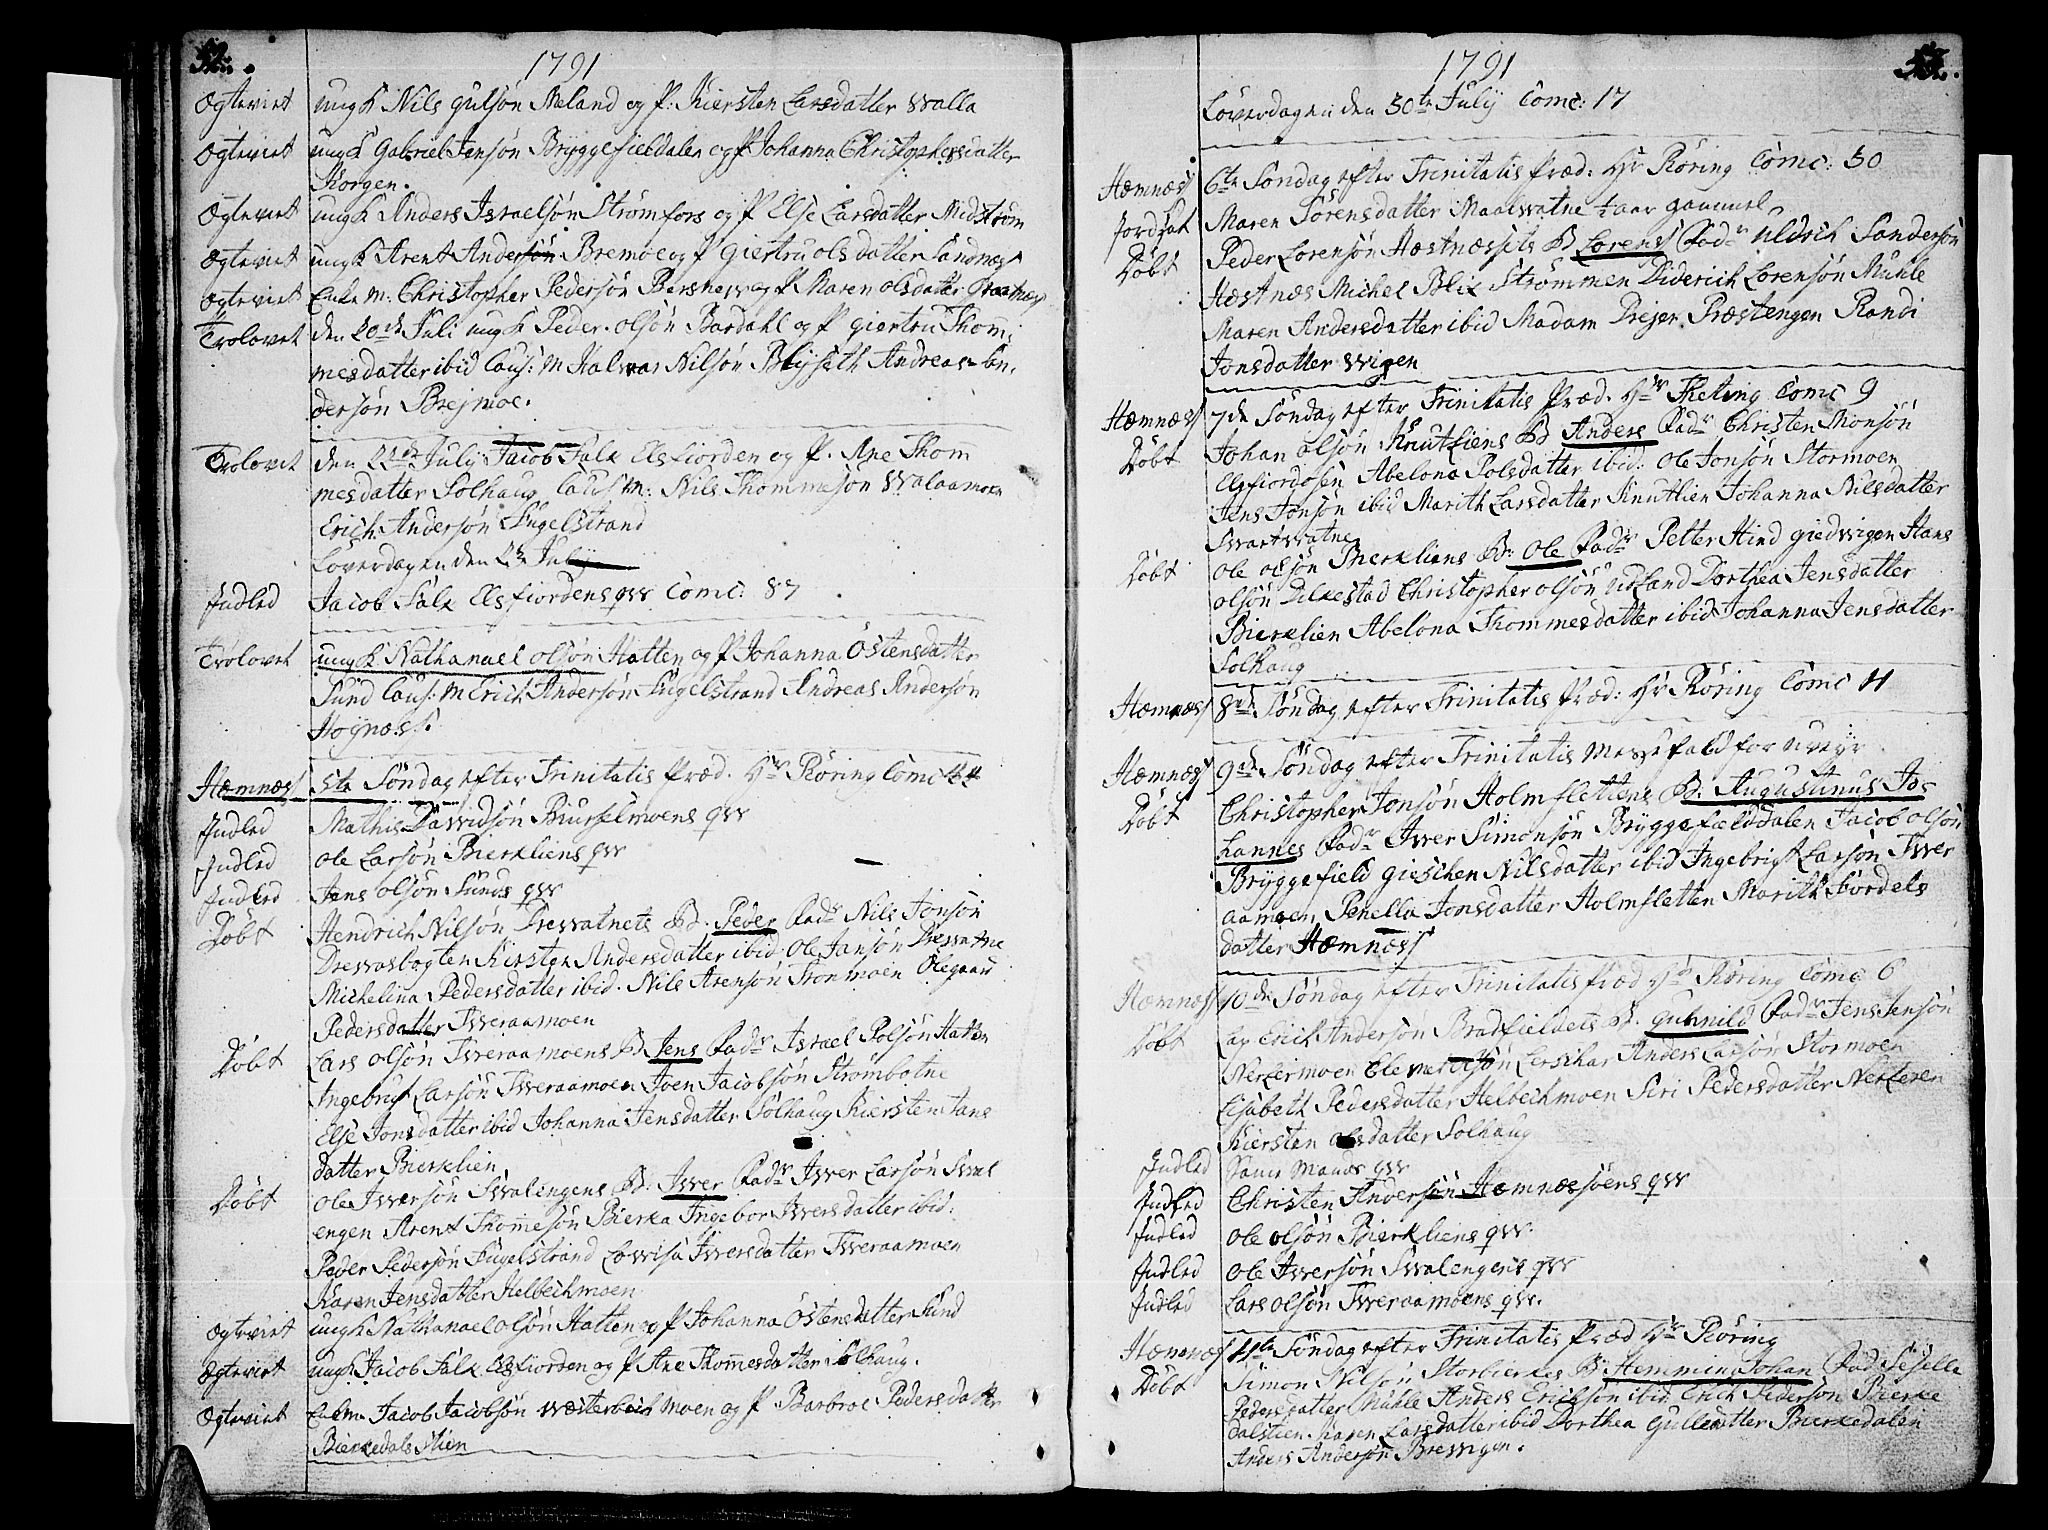 52.
1791
Ogteviet ungK Nils Gulsön Meland og P: Kiersten Larsdatter Walla
Ogteviet ungK Gabriel Jensön Bryggefieldalen og P Johanna Christophersdatter
Korgen.
Ogteviet ungK Anders Israelsön Strømfors og P Else Larsdatter Midström
Ogteviet ungK Arent Andersön Bremoe og P Giertru olsdatter Sandnæs
Ogteviet Enke m: Christopher Pedersön og P Maren olsdatter
Trolovet den 20de Juli ungK Peder olsön Bardahl og P giertru Thom-
mesdatter ibid Caus: M Halvar Nilsön Blyseth Andreas An-
dersön Brejmoe.
Trolovet den 21de July Jacob Falk Elsfiorden og P. Ane Thom
mesdatter Solhaug Caus: M: Nils Thommesön Walaamoen
Erich Andersön Fugelstrand
Löverdagen den July
Indled Jacob Falk Elsfiordens qvv Comc: 87
Trolovet ungK Nathanael olsön Hatten og P Johanna Östensdatter
Sund Caus: M Erich Andersön Fugelstrand Andreas Andersön
Hognæss.
Hæmnæss 5te Söndag efter Trinitatis Præd. Hr Röring Comc 44
Indled Mathis Davidsön Biurselmoens qvv
Indled Ole Larsön Bierkliens qvv
Indled Jens olsön Sunds qvv
Döbt Hendrich Nilsön Dresvatnets B. Peder Fadr Nils Jonsön
Dresvasbogten Kirsten Andersdatter ibid. Ole Jansön Dresvatne
Michelina Pedersdatter ibid. Nils Arensön Tronmoen Olegaard
Pedersdatter Tverraamoen
Döbt Lars olsön Tverraamoens B Jens Fadr Israel Polsön Hatten
Ingebrigt Larsön Tverraamoen Joen Jacobsön Strömbotne
Else Jonsdatter ibid Johanna Jensdatter Solhaug Kiersten Jans
datter Bierklien
Döbt Ole Iversön Svalengens B. Iver Fadr Iver Larsön Sval
engen Arent Thommesön Bierka Ingebor Iversdatter ibid:
Peder Pedersön Fugelstrand Lowisa Iversdatter Tverraamoen
Karen Jensdatter Helbechmoen
Ogteviet ungK Nathanael olsön Hatten og P Johanna Östensdatter Sund
Ogteviet ungK Jacob Falk Elsfiorden og P Ane Thommesdatter Solhaug.
Ogteviet Enkm: Jacob Jacobsön moen og P Barbroe Pedersdatter
Bierkedals lien
53.
1791
Löverdagen den 30te July Comc: 17
Hæmnæss 6te Söndag efter Trinitatis Præd: Hr Röring Comc: 50
Jordfæt Maren Sörensdatter Maalvatne ½ aar gammel
Döbt Peder Lorensön Hæstnæssets B Lorens Fadr Uldrich Sandersön
Hæstnæs Michel Blix Strømmen Diderich Lorensön Muhle
Maren Andersdatter ibid Madam Drejer Præstengen Randi
Jonsdatter vigen
Hæmnæss 7de Söndag efter Trinitatis Præd. Hr Comc 9
Döbt Johan olsön Knutliens B Anders Fadr Christen Monsön
Elsfiordosen Abelona Polsdatter ibid: Ole Jonsön Stormoen
Jens Jonsön ibid Marith Larsdatter Knutlien Johanna Nilsdatter
Svartvatne
Döbt Ole olsön Bierkliens B: Ole Fadr Petter Hind giedvigen Hans
olsön Dilkestad Christopher olsön Udland Dorthea Jensdatter
Bierklien Abelona Thommesdatter ibid Johanna Jensdatter
Solhaug
Hæmnæss 8de Söndag efter Trinitatis Præd: Hr Röring Comc 11
Hæmnæss 9de Söndag efter Trinitatis Messefald for uveyr
Döbt Christopher Jonsön Holmslettens B. Augustinus Jo-
hannes Fadr Iver Simonsön Bryggefælddalen Jacob olsön
Bryggefield Gieschen Nilsdatter ibid Ingebrigt Larsön Tver
aamoen Penella Jonsdatter Holmsletten Marith
datter Hæmnæss
Hæmnæss 10de Söndag efter Trinitatis Præd Hr Röring Comc 6
Döbt Lap Erich Andersön Bradfieldets B. Guhnild Fadr Jens Jensön
Nerlermoen Anders Larsön Stormoen
Lisabeth Pedersdatter Helbechmoen Siri Pedersdatter
Kiersten olsdatter Solhaug
Indled Samme Mands qvv
Indled Christen Andersön Hæmnæsöens qvv
Indled Ole olsön Bierkliens qvv.
Indled Ole Iversön Svalengens qvv
Indled Lars olsön Tverraamoens qvv.
Hæmnæss 11te Söndag efter Trinitatis Præd Hr Röring
Döbt Simon Nilsön Storbierkes B: Hemming Johan Fad: Sesella
Pedersdatter Muhle Anders Erichsön ibid. Erich Pedersön Bierke
dalslien. Karen Larsdatter ibid Dorthea Gullesdatter Bierkedalen
Anders Andersön Bresvigen.